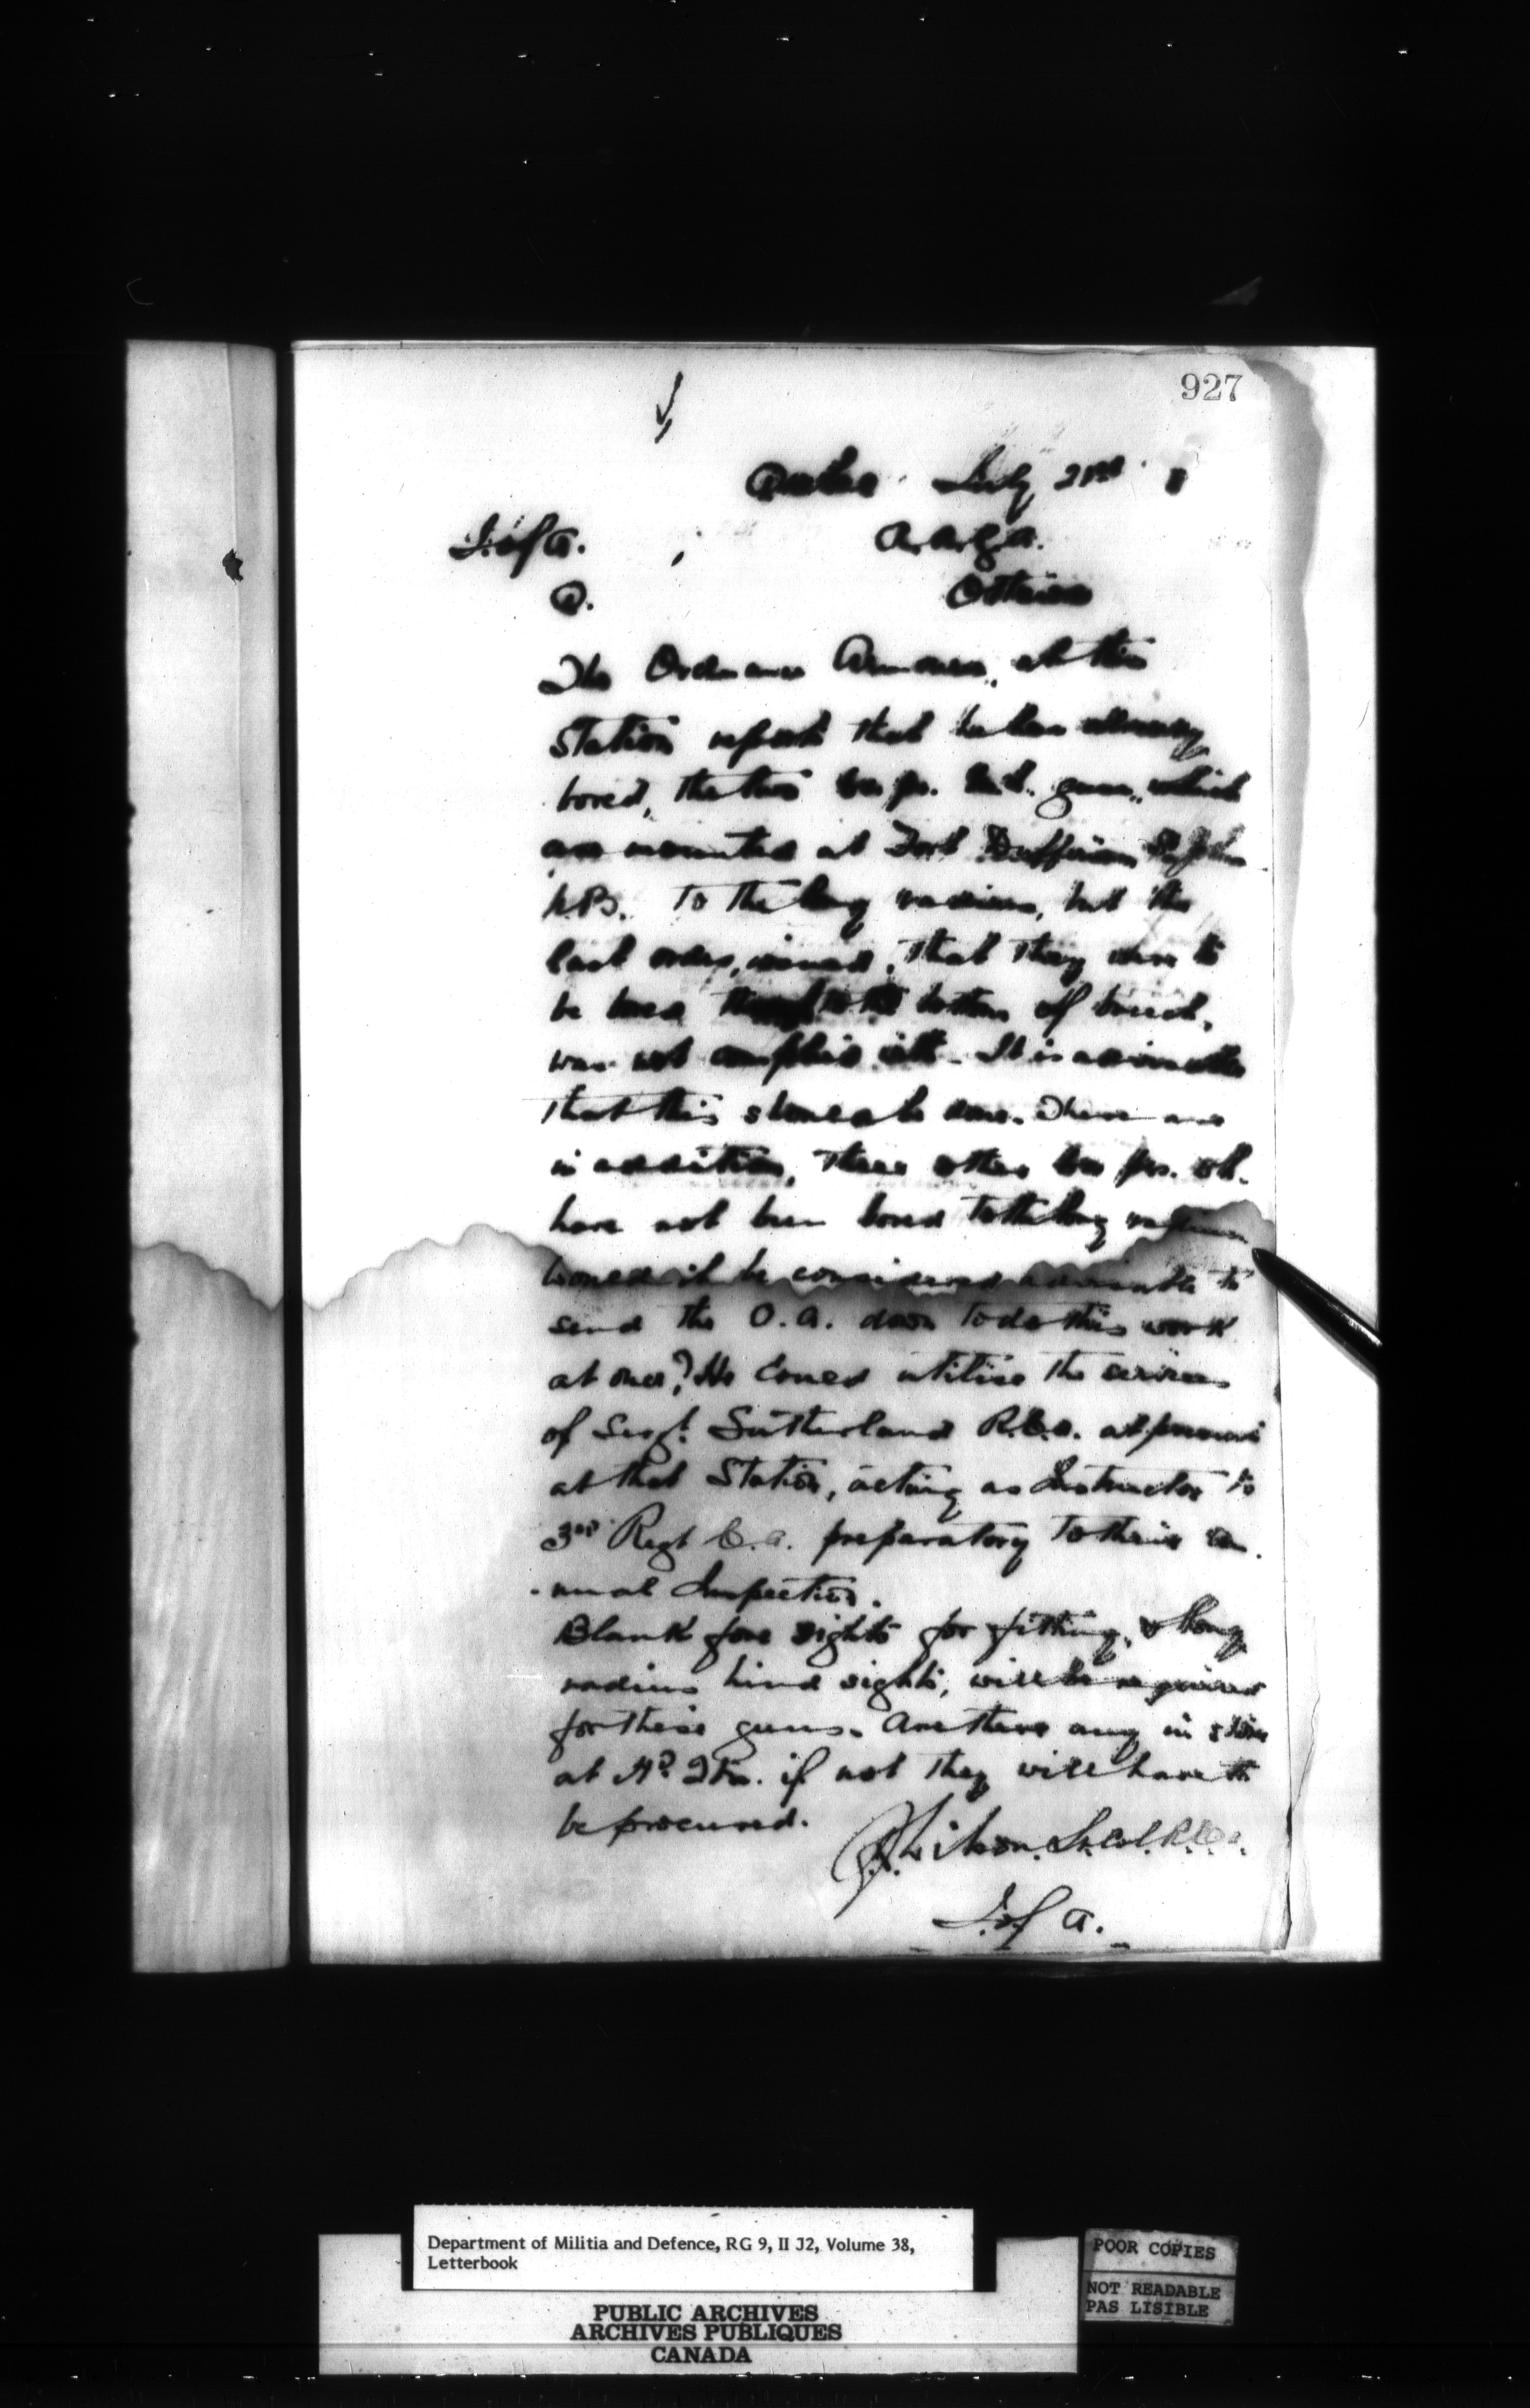 927
July 21st
I. of A.
A.A.G.A.
Q.
Ottawa
The Ordnance Armourer, at this
Station reports that he has already
bored, the two pr. guns, which
are mounted at Fort Dufferin St. John
N.B. to the long radius, but the
last order, issued, that they were to
be bored to the bottom of breech,
was not complied with. It is advisable
that this should be done. There are
in addition, three other prs. wh.
have not been bored to the long radius
would it be considered advisable to
send the O.A. down to do this work
at once? He could utilise the services
of Sergt. Sutherland R.C.A. at present
at that Station, acting as Instructor to
3rd Regt C.A. preparatory to their an
-nual Inspection.
Blank fore sights for fitting, & long
radius hind sights, will be required
for these guns. Are there any in store
at Hd. Qrs. if not they will have to
be procured.
Wilson. Lt. Col. R.C.A.
I. of A.
Department of Militia and Defence, RG 9, II J2, Volume 38,
Letterbook
POOR COPIES
NOT READABLE
PAS LISIBLE
PUBLIC ARCHIVES
ARCHIVES PUBLIQUES
CANADA